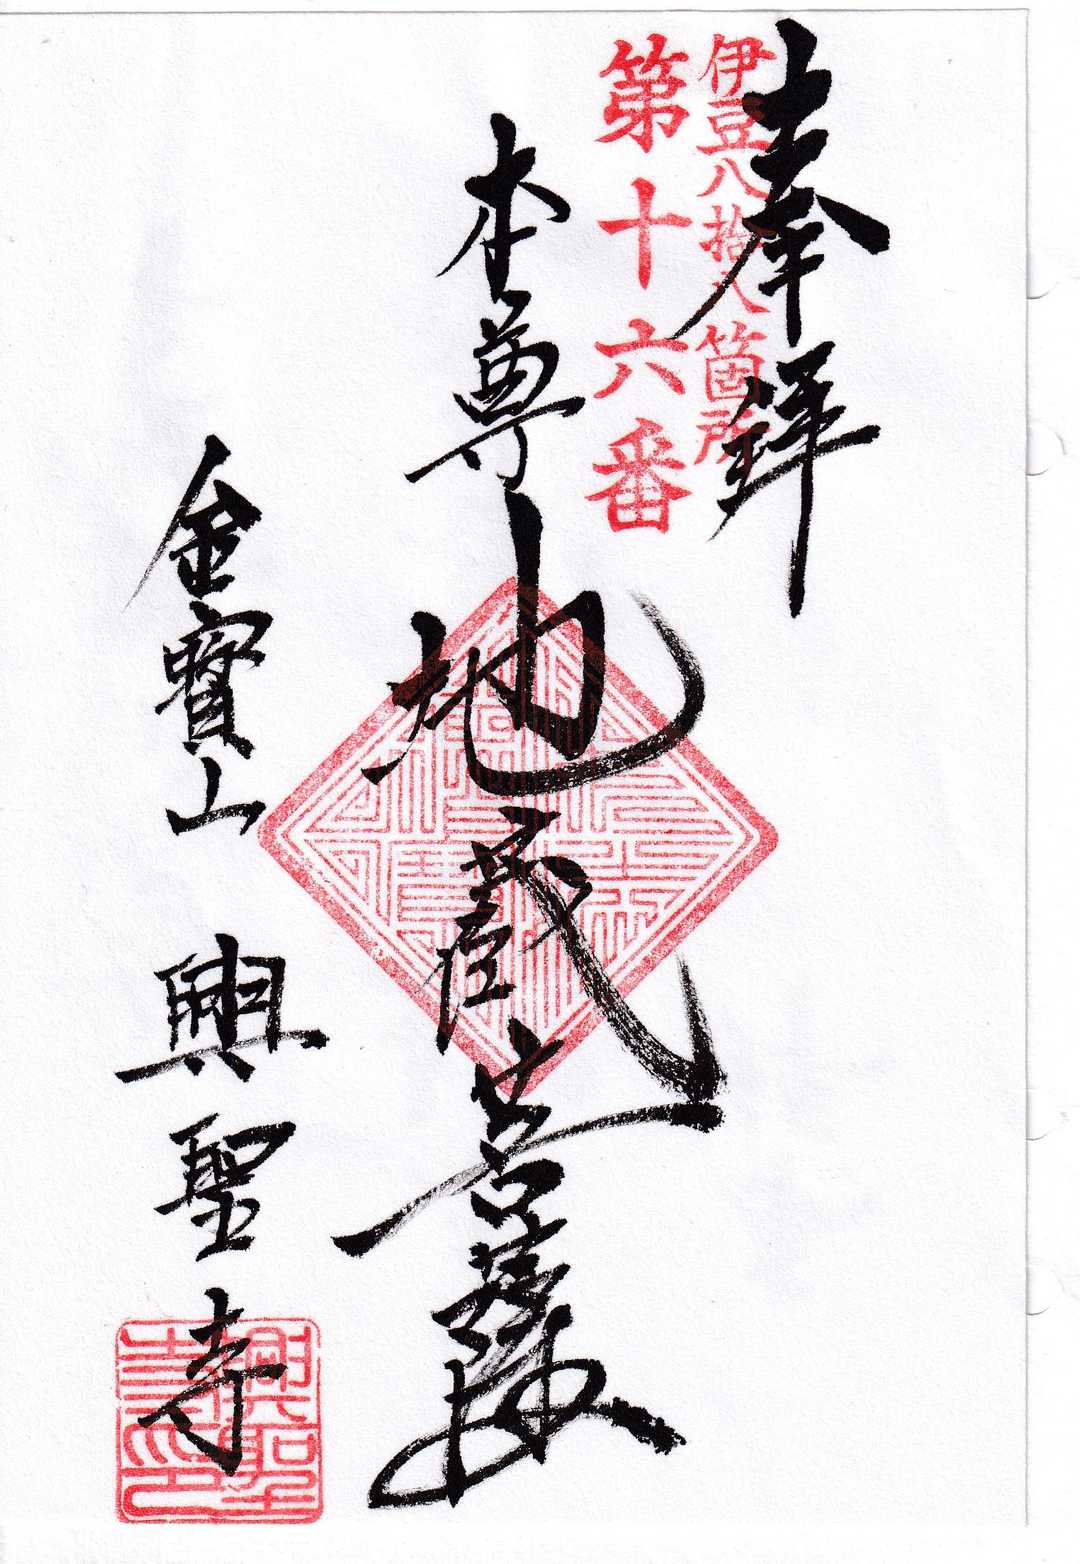 奉拜
伊豆八拾八箇所
第十六番
本尊
地蔵菩薩
金寶山
興聖寺
興聖
寺印